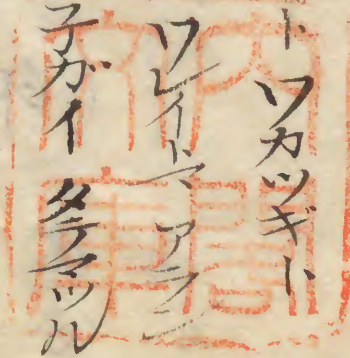 ト ワカツギト
ワレイトマ アラン
子ガイ タテマツル